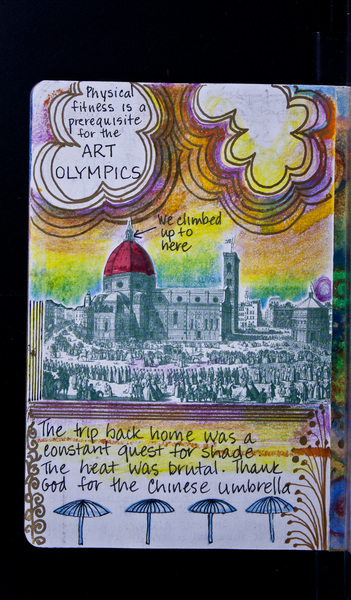 Physical
fitness is a
prerequisite
for the
ART
OLYMPICS
We climbed
up to
here
The trip back home was a
constant quest for shade
The heat was brutal. Thank
God for the Chinese umbrella